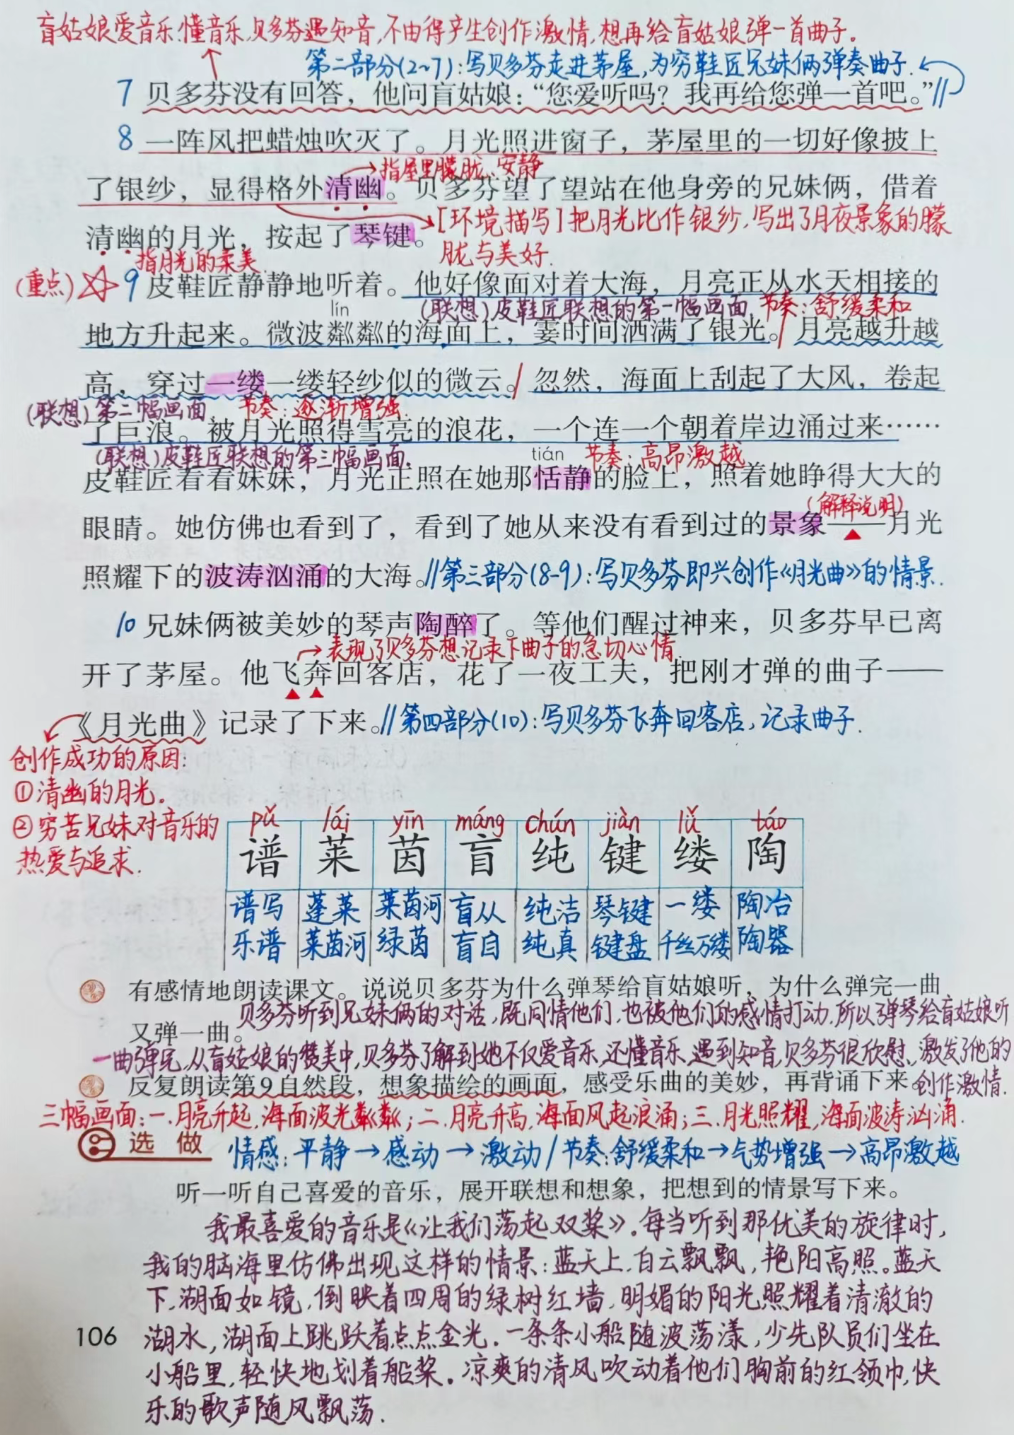 盲姑娘爱音乐,懂音乐,贝多芬遇知音,不由得产生创作激情,想再给盲姑娘弹一首曲子。
第二部分(2~7):写贝多芬走进茅屋,为穷鞋匠兄妹俩弹奏曲子.
7 贝多芬没有回答，他问盲姑娘：“您爱听吗？我再给您弹一首吧。”//
8 一阵风把蜡烛吹灭了。月光照进窗子，茅屋里的一切好像披上
指屋里朦胧、安静
了银纱，显得格外清幽。贝多芬望了望站在他身旁的兄妹俩，借着
[环境描写]把月光比作银纱,写出了月夜景象的朦
清幽的月光，按起了琴键。
胧与美好.
指月光的柔美
(重点)
9 皮鞋匠静静地听着。他好像面对着大海，月亮正从水天相接的
lín
(联想)皮鞋匠联想的第一幅画面,节奏:舒缓柔和
地方升起来。微波粼粼的海面上，霎时间洒满了银光。/月亮越升越
高，穿过一缕一缕轻纱似的微云。/忽然，海面上刮起了大风，卷起
(联想)第二幅画面, 节奏:逐渐增强.
了巨浪。被月光照得雪亮的浪花，一个连一个朝着岸边涌过来……
(联想)皮鞋匠联想的第三幅画面.
tián 节奏:高昂激越
皮鞋匠看看妹妹，月光正照在她那恬静的脸上，照着她睁得大大的
(解释说明)
眼睛。她仿佛也看到了，看到了她从来没有看到过的景象——月光
照耀下的波涛汹涌的大海。//第三部分(8-9):写贝多芬即兴创作《月光曲》的情景.
10 兄妹俩被美妙的琴声陶醉了。等他们醒过神来，贝多芬早已离
表现了贝多芬想记录下曲子的急切心情.
开了茅屋。他飞奔回客店，花了一夜工夫，把刚才弹的曲子——
《月光曲》记录了下来。//第四部分(10):写贝多芬飞奔回客店,记录曲子.
创作成功的原因:
①清幽的月光.
②穷苦兄妹对音乐的
热爱与追求.
pǔ lái yīn máng chún jiàn lǚ táo
谱 莱 茵 盲 纯 键 缕 陶
谱写 蓬莱 莱茵河 盲从 纯洁 琴键 一缕 陶冶
乐谱 莱茵河 绿茵 盲目 纯真 键盘 千丝万缕 陶器
有感情地朗读课文。说说贝多芬为什么弹琴给盲姑娘听，为什么弹完一曲
又弹一曲。
贝多芬听到兄妹俩的对话,既同情他们,也被他们的感情打动,所以弹琴给盲姑娘听
一曲弹完,从盲姑娘的赞美中,贝多芬了解到她不仅爱音乐,还懂音乐,遇到知音,贝多芬很欣慰,激发了他的
反复朗读第9自然段，想象描绘的画面，感受乐曲的美妙，再背诵下来。
创作激情.
三幅画面:一.月亮升起,海面波光粼粼;二.月亮升高,海面风起浪涌;三.月光照耀,海面波涛汹涌.
选做
情感:平静→感动→激动/节奏:舒缓柔和→气势增强→高昂激越
听一听自己喜爱的音乐，展开联想和想象，把想到的情景写下来。
我最喜爱的音乐是《让我们荡起双桨》。每当听到那优美的旋律时,
我的脑海里仿佛出现这样的情景:蓝天上,白云飘飘,艳阳高照。蓝天
下,湖面如镜,倒映着四周的绿树红墙,明媚的阳光照耀着清澈的
106
湖水,湖面上跳跃着点点金光.一条条小船随波荡漾,少先队员们坐在
小船里,轻快地划着船桨。凉爽的清风吹动着他们胸前的红领巾,快
乐的歌声随风飘荡.